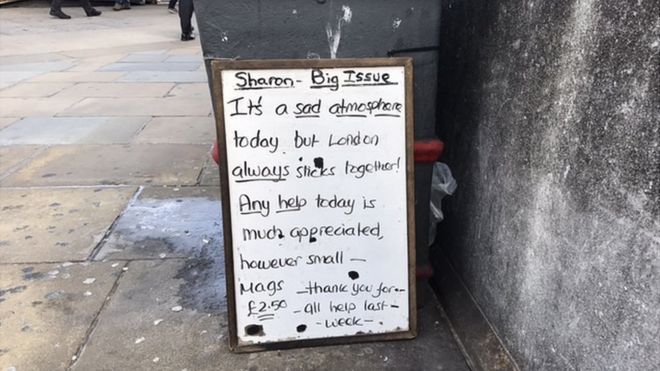 Sharon - Big Issue
It's a sad atmosphere
today but London
always sticks together!
Any help today is
much appreciated,
however small -
Mags - thank you for -
£2.50 - all help last -
- week -